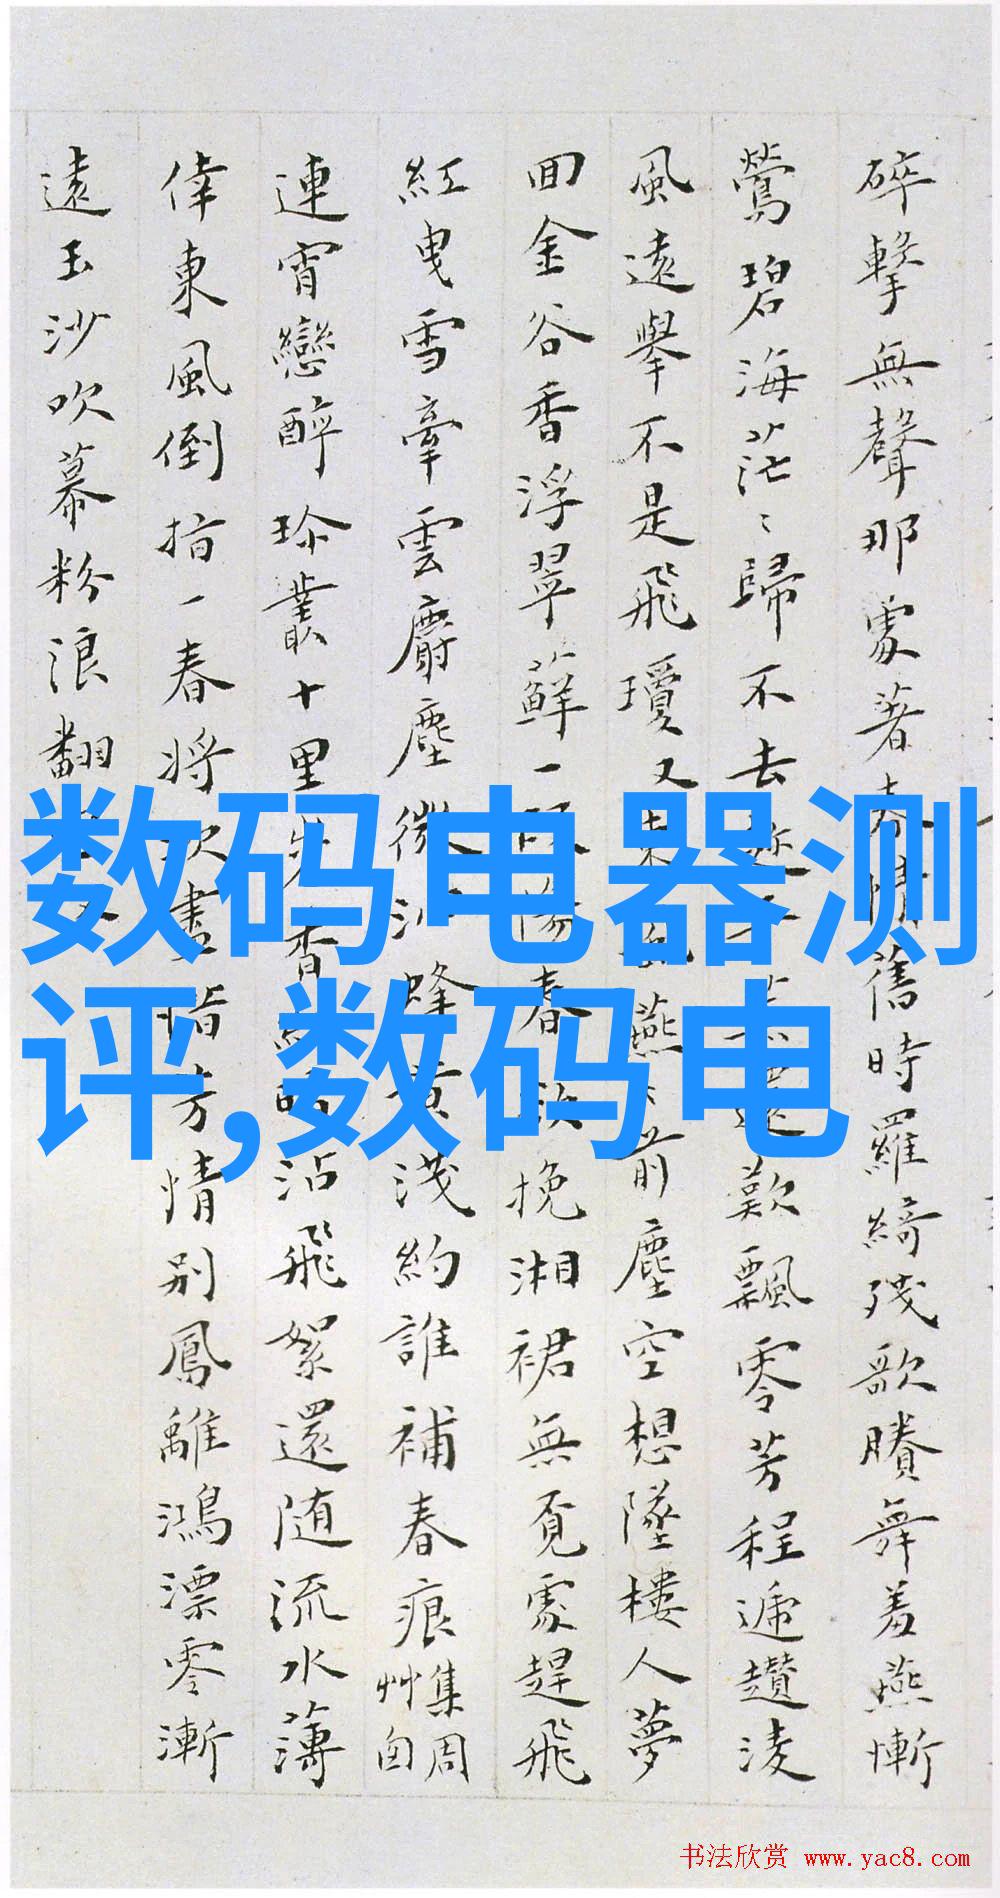 碎擊無聲那處著春情舊時羅綺殘歌賸舞羞燕慚
鶯碧海茫〻歸不去歎飄零芳程遞趲淩
風遠舉不是飛瓊又燕前塵空想墜樓人夢
回金谷香浮翠蘚一傷春欲挽湘裙無覓處趕飛
紅曳雪牽雲麝塵微沁蜂黃淺約誰補春痕
集周
艸囱
連宵戀醉珍叢十里香沾飛絮還随流水薄
倖東風倒指一春將次盡情別鳳離鴻漂零漸
遠玉沙吹幕粉浪翻
数码电器测
评,数码电
书法欣赏 www.yac8.com